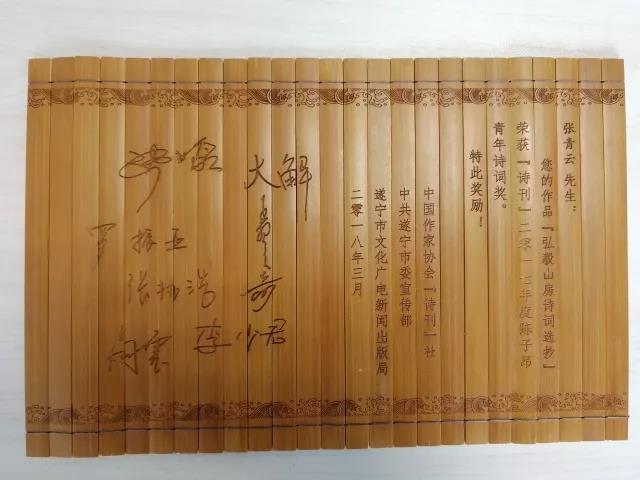 张青云 先生：
您的作品『弘毅山房诗词选抄』
荣获『诗刊』二零一七年度陈子昂
青年诗词奖。
特此奖励！
中国作家协会『诗刊』社
中共遂宁市委宣传部
遂宁市文化广电新闻出版局
二零一八年三月
大解
李少君
罗振亚
张执浩